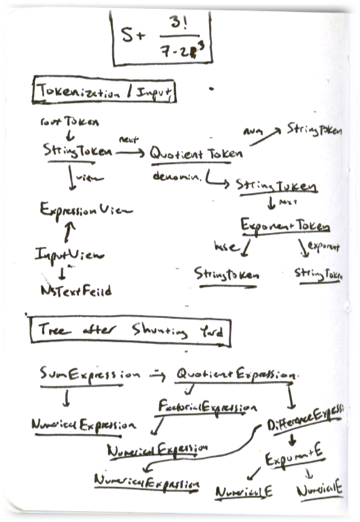 5+ 3!
7-28³
Tokenization / Input
root Token
StringToken next Quotient Token num StringToken
view denomin. StringToken
next
ExpressionView ExponentToken
base exponent
InputView StringToken StringToken
NSTextFeild
Tree after Shunting Yard
SumExpression → QuotientExpression
FactorialExpression
NumericalExpression DifferenceExpress
NumericalExpression ExponentE
NumericalExpression NumericalE NumericalE